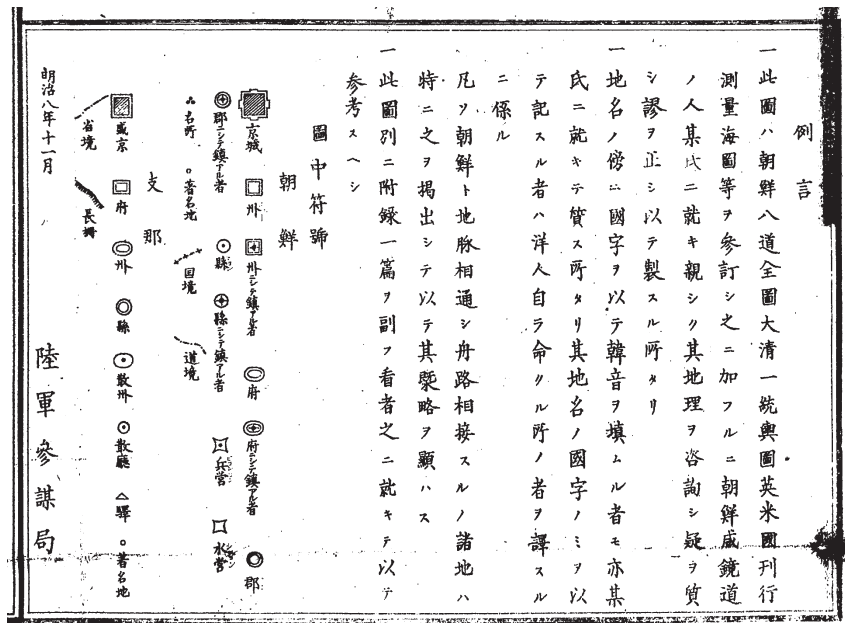 例言
一此圖ハ朝鮮八道全圖大清一統輿圖英米國刊行
測量海圖等ヲ參訂シ之ニ加フルニ朝鮮咸鏡道
ノ人某氏ニ就キ親シク其地理ヲ咨詢シ疑ヲ質
シ謬ヲ正シ以テ製スル所タリ
一地名ノ傍ニ國字ヲ以テ韓音ヲ填ムル者モ亦某
氏ニ就キテ質ス所タリ其地名ノ國字ノミヲ以
テ記スル者ハ洋人自ラ命クル所ノ者ヲ譯スル
ニ係ル
凡ソ朝鮮ト地脉相通シ舟路相接スルノ諸地ハ
特ニ之ヲ掲出シテ以テ其槩略ヲ顯ハス
一此圖別ニ附録一篇ヲ副フ看者之ニ就キテ以テ
参考スヘシ
圖中符號
朝鮮
京城 州 州ニシテ鎮アル者 府 府ニシテ鎮アル者 郡
郡ニシテ鎮アル者 縣 縣ニシテ鎮アル者 兵営 水営
名所 著名地 国境 道境
支那
盛京 府 州 縣 散州 散廳 驛 著名地
省境 長柵
明治八年十一月
陸軍參謀局